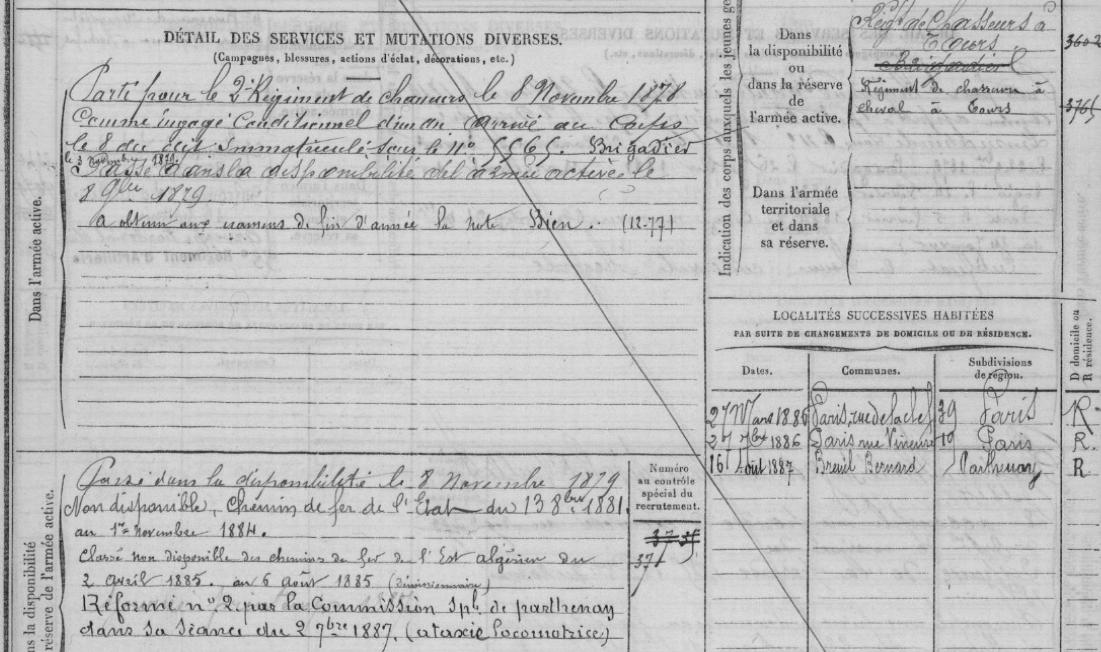 DÉTAIL DES SERVICES ET MUTATIONS DIVERSES.
(Campagnes, blessures, actions d'éclat, décorations, etc.)
Dans l'armée active.
Parti pour le 2e Régiment de chasseurs le 8 Novembre 1878
Comme engagé Conditionnel d'un an Arrivé au Corps
le 8 du dit Immatriculé sous le No 5565. Brigadier
le 3 novembre 1879.
Passé dans la disponibilité de l'armée active le
8 9bre 1879
a obtenu aux examens de fin d'année la note Bien. (12-77)
Indication des corps auxquels les jeunes ge
Dans
la disponibilité
ou
dans la réserve
de
l'armée active.
Régt de Chasseurs à
Tours
3602
Régiment de chasseurs à
cheval à Tours
3765
Dans l'armée
territoriale
et dans
sa réserve.
LOCALITÉS SUCCESSIVES HABITÉES
PAR SUITE DE CHANGEMENTS DE DOMICILE OU DE RÉSIDENCE.
Dates. Communes. Subdivisions de région. D domicile ou R résidence.
27 Mars 1886 Paris, rue de la clef 39 Paris R.
27 7bre 1886 Paris rue Vineuse 19 Paris R.
16 Aout 1887 Breuil Bernard Parthenay R
ns la disponibilité
réserve de l'armée active.
Passé dans la disponibilité le 8 Novembre 1879
Non disponible, Chemin de fer de l'Etat du 13 8bre 1881.
au 1er Novembre 1884.
Classé non disponible des chemins de fer de l'Est algérien du
2 avril 1885. au 6 août 1885 (démissionnaire)
Réformé no 2 par la Commission sple de parthenay
dans sa séance du 2 7bre 1887. (ataxie locomotrice)
Numéro
au contrôle
spécial du
recrutement.